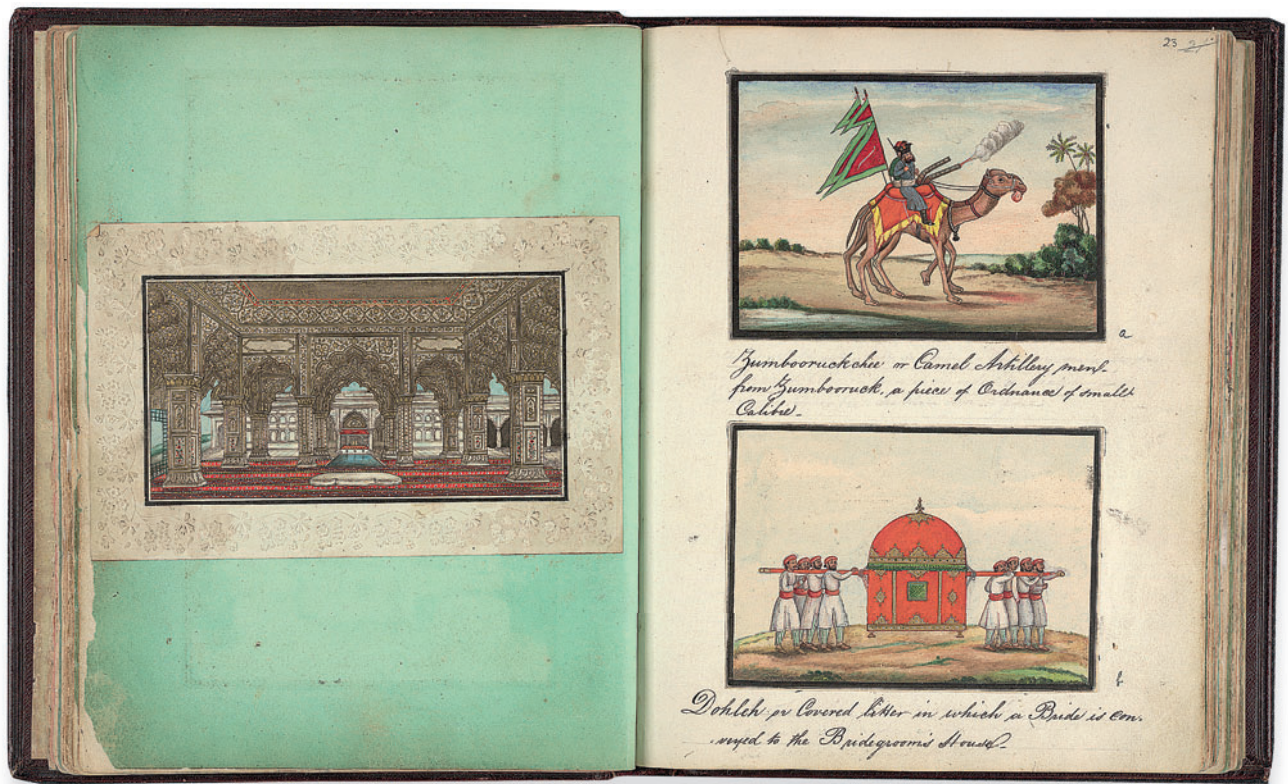 23 21
a
Zumbooruckchee or Camel Artillery men-
from Zumbooruck, a piece of Ordnance of small
Calibre-
b
Dohleh or Covered litter in which a Bride is con-
veyed to the Bridegroom's House-